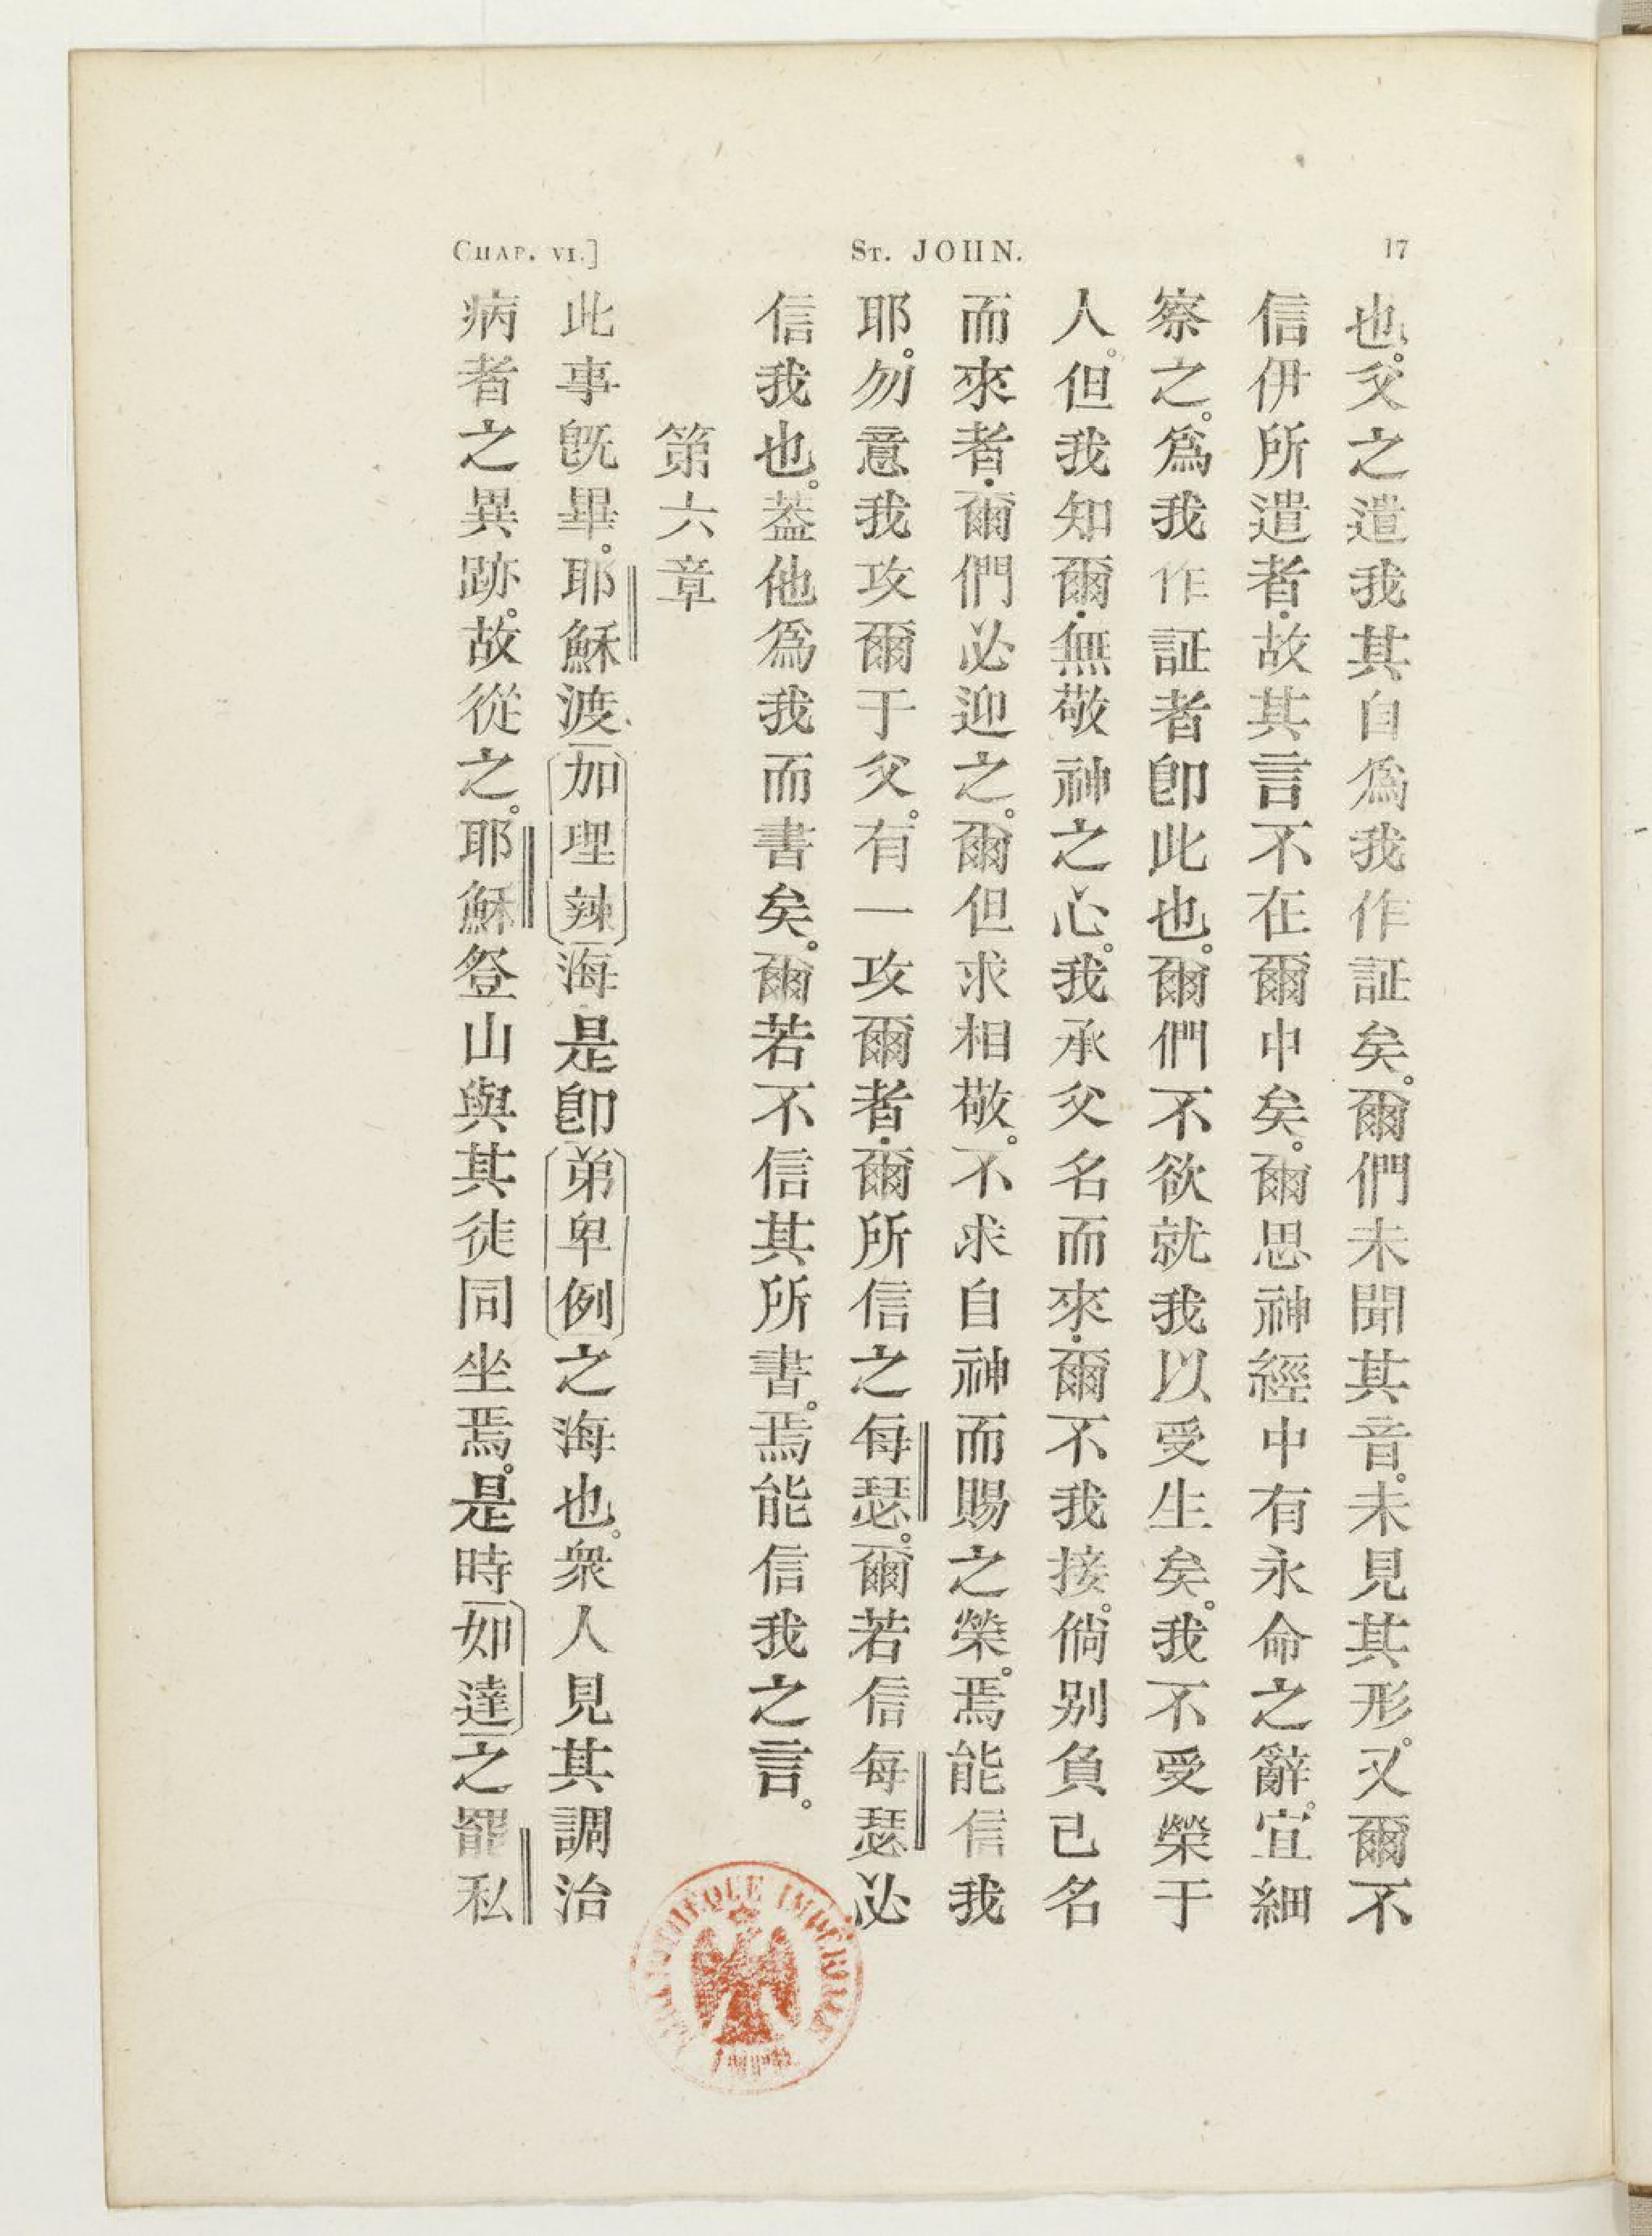 CHAP. VI.] ST. JOHN. 17
也。父之遣我其自爲我作証矣。爾們未聞其音。未見其形。又爾不
信伊所遣者·故其言不在爾中矣。爾思神經中有永命之辭。宜細
察之。爲我作証者卽此也。爾們不欲就我以受生矣。我不受榮于
人。但我知爾·無敬神之心。我承父名而來·爾不我接。倘别負己名
而來者·爾們必迎之。爾但求相敬。不求自神而賜之榮。焉能信我
耶。勿意我攻爾于父。有一攻爾者·爾所信之每瑟。爾若信每瑟必
信我也。葢他爲我而書矣。爾若不信其所書。焉能信我之言。
第六章
此事旣畢。耶穌渡加理辣海是卽弟卑例之海也。衆人見其調治
病者之異跡。故從之。耶穌登山與其徒同坐焉。是時如達之罷私
BIBLIOTHÈQUE IMPÉRIALE